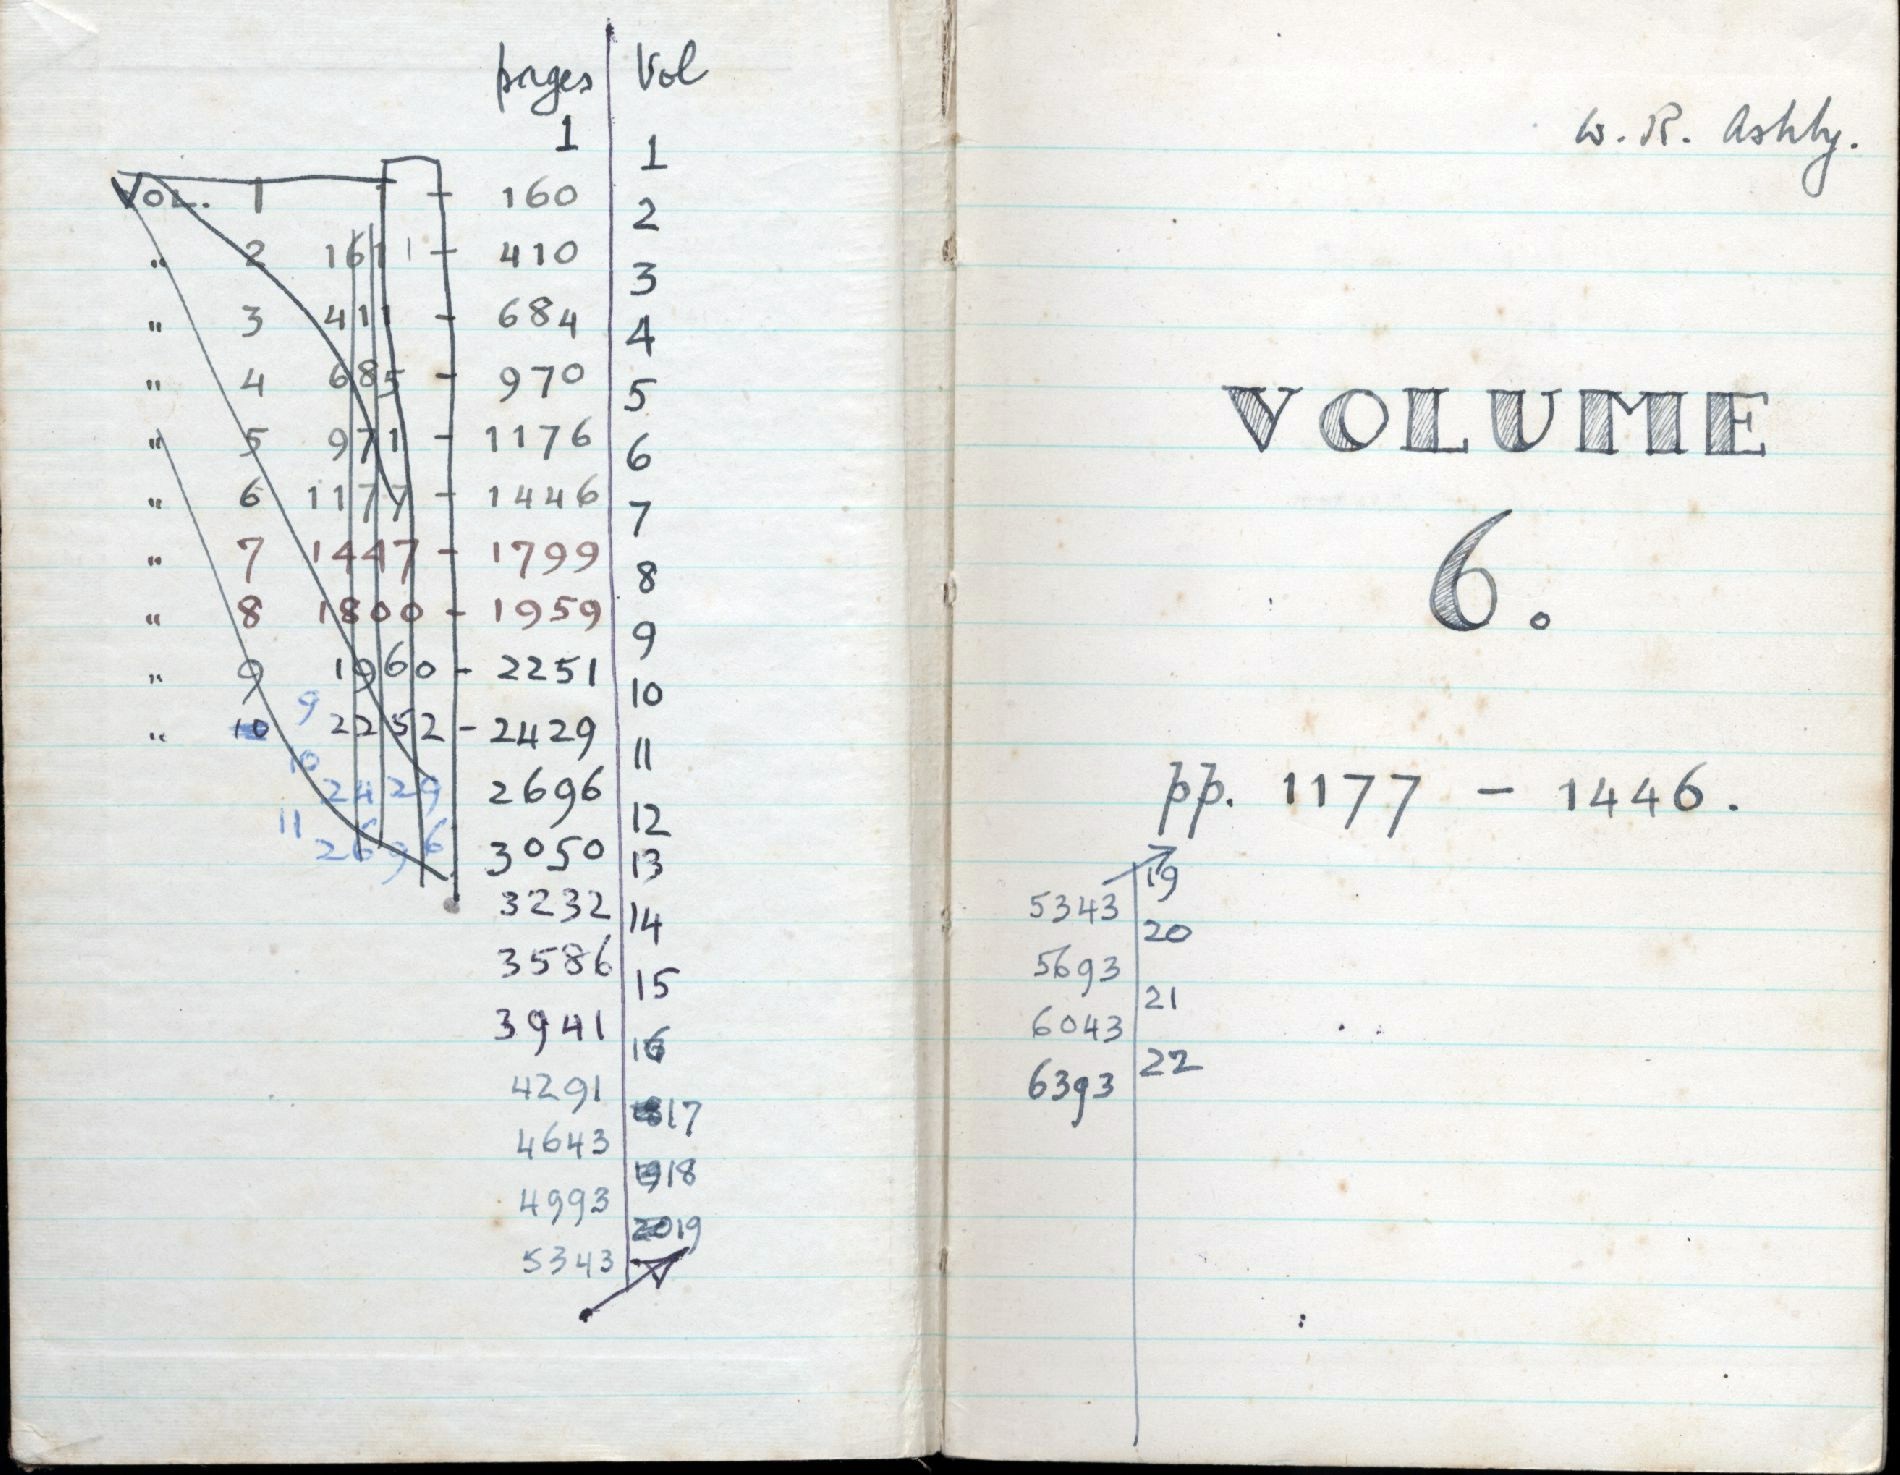 pages Vol
1
1
VOL. 1 1 - 160
2
" 2 161 - 410
3
" 3 411 - 684
4
" 4 685 - 970
5
" 5 971 - 1176
6
" 6 1177 - 1446
7
" 7 1447 - 1799
8
" 8 1800 - 1959
9
" 9 1960 - 2251
10
9
" 10 2252 - 2429
11
10
2429 2696
12
11
2696 3050
13
3232
14
3586
15
3941
16
4291
17
4643
18
4993
19
5343
W. R. Ashby.
VOLUME
6.
pp. 1177 - 1446.
19
5343
20
5693
21
6043
22
6393